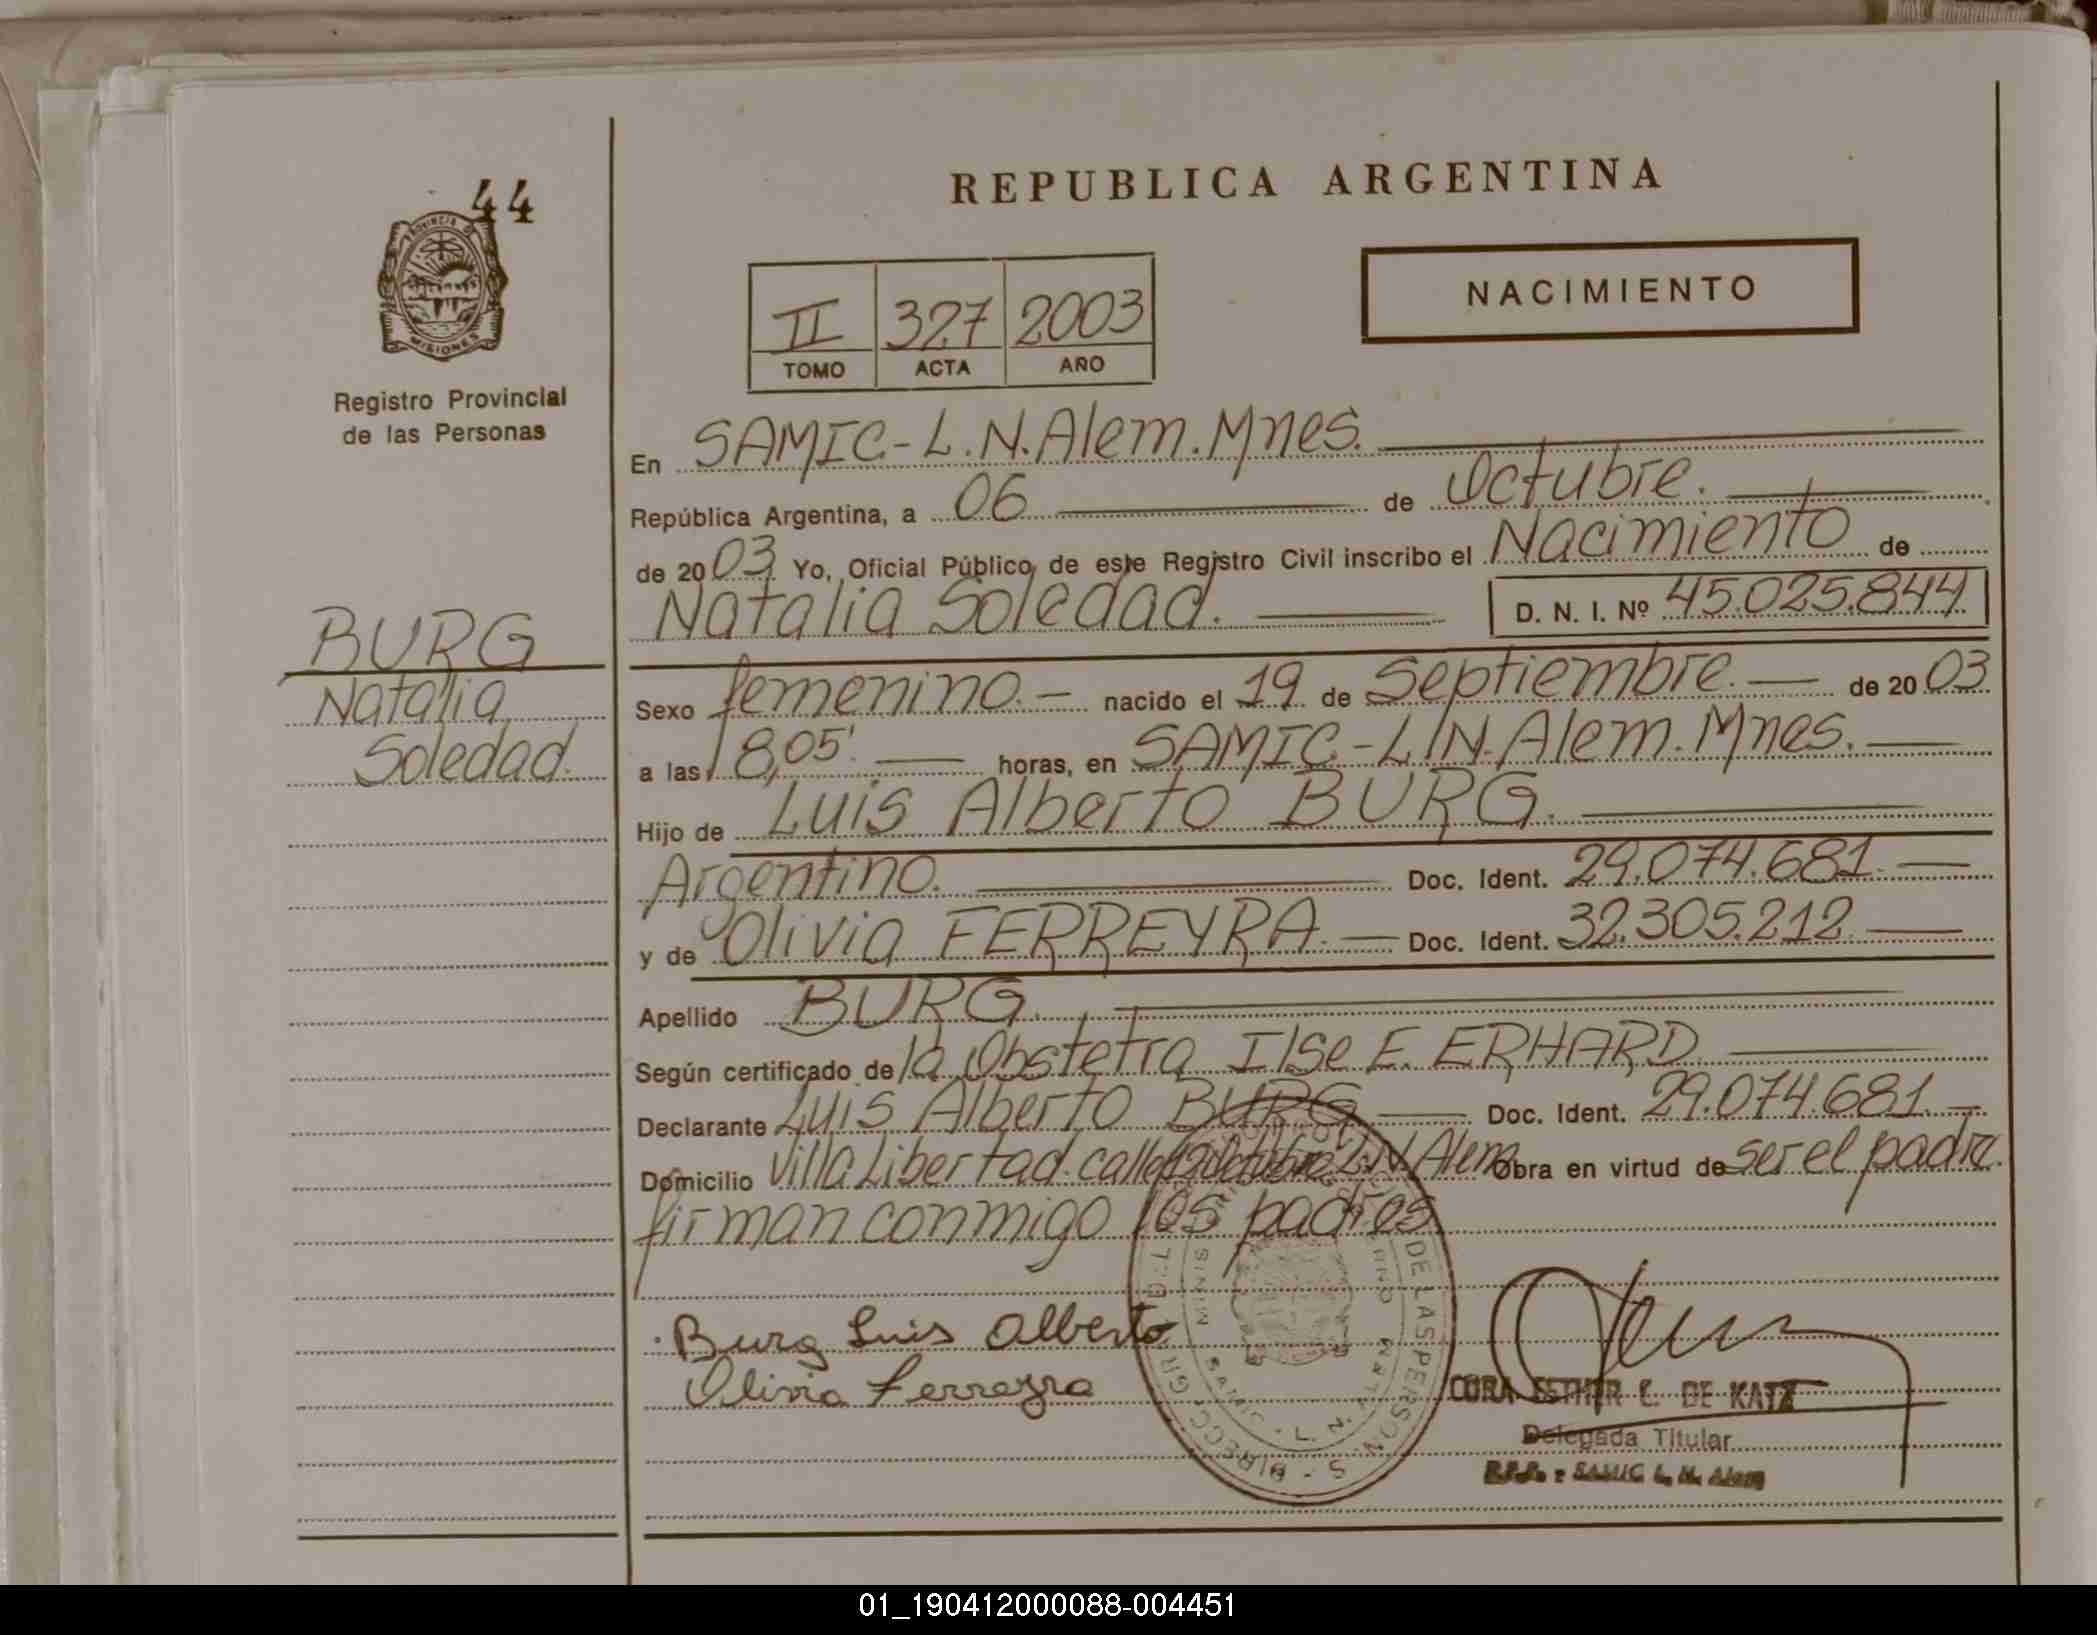 44
PROVINCIA DE
MISIONES
Registro Provincial
de las Personas
REPUBLICA ARGENTINA
NACIMIENTO
II 327 2003
TOMO ACTA AÑO
En SAMIC-L.N.Alem.Mnes.
República Argentina, a 06 de Octubre.
de 2003. Yo, Oficial Público de este Registro Civil inscribo el Nacimiento de
Natalia Soledad. D. N. I. Nº 45.025.844
BURG
Natalia
Soledad.
Sexo femenino.- nacido el 19 de Septiembre. de 2003
a las 18,05' horas, en SAMIC-L.N.Alem.Mnes.
Hijo de Luis Alberto BURG.
Argentino. Doc. Ident. 29.074.681.
y de Olivia FERREYRA. Doc. Ident. 32.305.212.
Apellido BURG.
Según certificado de la Obstetra Ilse E. ERHARD
Declarante Luis Alberto BURG Doc. Ident. 29.074.681.
Domicilio Villa Libertad. calle L.N.Alem Obra en virtud de ser el padre.
firman conmigo los padres
Burg Luis Alberto
Olivia Ferreyra
DE LAS PERSON S
SAMIC - L. N.
CORA ESTHER C. DE KATZ
Delegada Titular
R.P.P. - SAMIC L. N. Alem
01_190412000088-004451